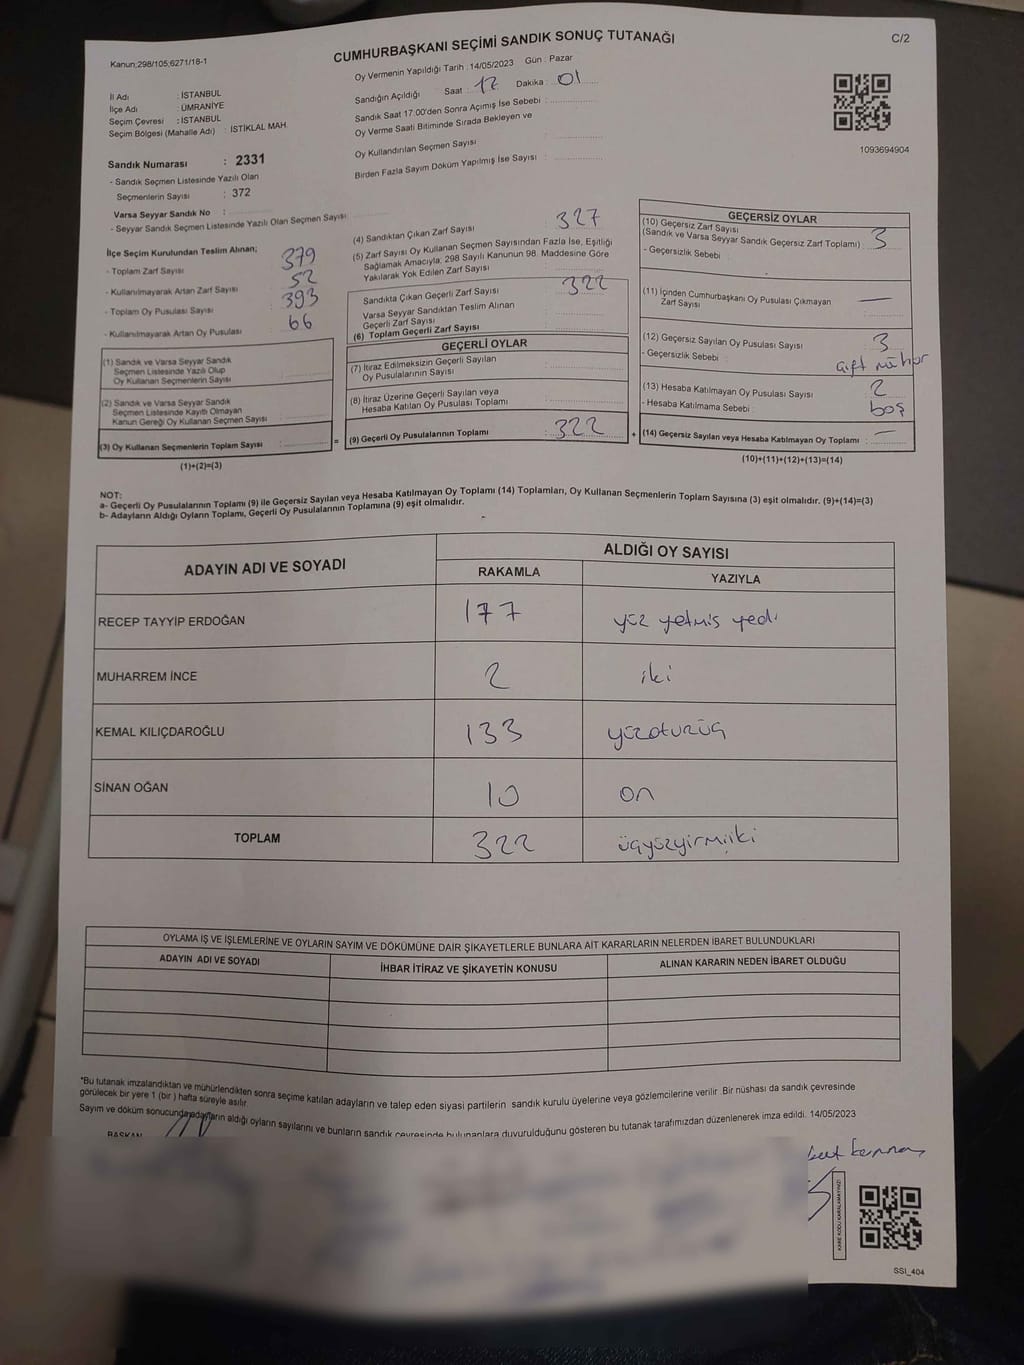 C/2
Kanun;298/105;6271/18-1
CUMHURBAŞKANI SEÇİMİ SANDIK SONUÇ TUTANAĞI
İl Adı : İSTANBUL
İlçe Adı : ÜMRANİYE
Seçim Çevresi : İSTANBUL
Seçim Bölgesi (Mahalle Adı) : İSTİKLAL MAH.
Sandık Numarası : 2331
- Sandık Seçmen Listesinde Yazılı Olan
Seçmenlerin Sayısı : 372
Varsa Seyyar Sandık No :
- Seyyar Sandık Seçmen Listesinde Yazılı Olan Seçmen Sayısı:
Oy Vermenin Yapıldığı Tarih : 14/05/2023 Gün : Pazar
Sandığın Açıldığı Saat : 17 Dakika : 01
Sandık Saat 17:00'den Sonra Açımış İse Sebebi :
Oy Verme Saati Bitiminde Sırada Bekleyen ve
Oy Kullandırılan Seçmen Sayısı :
Birden Fazla Sayım Döküm Yapılmış İse Sayısı :
1093694904
İlçe Seçim Kurulundan Teslim Alınan;
- Toplam Zarf Sayısı : 379
- Kullanılmayarak Artan Zarf Sayısı : 52
- Toplam Oy Pusulası Sayısı : 393
- Kullanılmayarak Artan Oy Pusulası : 66
(1) Sandık ve Varsa Seyyar Sandık
Seçmen Listesinde Yazılı Olup
Oy Kullanan Seçmenlerin Sayısı :
(2) Sandık ve Varsa Seyyar Sandık
Seçmen Listesinde Kayıtlı Olmayan
Kanun Gereği Oy Kullanan Seçmen Sayısı :
(3) Oy Kullanan Seçmenlerin Toplam Sayısı :
(1)+(2)=(3)
=
(4) Sandıktan Çıkan Zarf Sayısı : 327
(5) Zarf Sayısı Oy Kullanan Seçmen Sayısından Fazla İse, Eşitliği
Sağlamak Amacıyla; 298 Sayılı Kanunun 98. Maddesine Göre
Yakılarak Yok Edilen Zarf Sayısı :
Sandıkta Çıkan Geçerli Zarf Sayısı : 322
Varsa Seyyar Sandıktan Teslim Alınan
Geçerli Zarf Sayısı :
(6) Toplam Geçerli Zarf Sayısı :
GEÇERLİ OYLAR
(7) İtiraz Edilmeksizin Geçerli Sayılan
Oy Pusulalarının Sayısı :
(8) İtiraz Üzerine Geçerli Sayılan veya
Hesaba Katılan Oy Pusulası Toplamı :
(9) Geçerli Oy Pusulalarının Toplamı : 322
+
GEÇERSİZ OYLAR
(10) Geçersiz Zarf Sayısı
(Sandık ve Varsa Seyyar Sandık Geçersiz Zarf Toplamı) : 3
- Geçersizlik Sebebi :
(11) İçinden Cumhurbaşkanı Oy Pusulası Çıkmayan
Zarf Sayısı : —
(12) Geçersiz Sayılan Oy Pusulası Sayısı : 3
- Geçersizlik Sebebi : çift mühür
(13) Hesaba Katılmayan Oy Pusulası Sayısı : 2
- Hesaba Katılmama Sebebi : boş
(14) Geçersiz Sayılan veya Hesaba Katılmayan Oy Toplamı : —
(10)+(11)+(12)+(13)=(14)
NOT:
a- Geçerli Oy Pusulalarının Toplamı (9) ile Geçersiz Sayılan veya Hesaba Katılmayan Oy Toplamı (14) Toplamları, Oy Kullanan Seçmenlerin Toplam Sayısına (3) eşit olmalıdır. (9)+(14)=(3)
b- Adayların Aldığı Oyların Toplamı, Geçerli Oy Pusulalarının Toplamına (9) eşit olmalıdır.
ADAYIN ADI VE SOYADI ALDIĞI OY SAYISI
RAKAMLA YAZIYLA
RECEP TAYYİP ERDOĞAN 177 yüz yetmiş yedi
MUHARREM İNCE 2 iki
KEMAL KILIÇDAROĞLU 133 yüzotuzüç
SİNAN OĞAN 10 on
TOPLAM 322 üçyüzyirmiiki
OYLAMA İŞ VE İŞLEMLERİNE VE OYLARIN SAYIM VE DÖKÜMÜNE DAİR ŞİKAYETLERLE BUNLARA AİT KARARLARIN NELERDEN İBARET BULUNDUKLARI
ADAYIN ADI VE SOYADI İHBAR İTİRAZ VE ŞİKAYETİN KONUSU ALINAN KARARIN NEDEN İBARET OLDUĞU
"Bu tutanak imzalandıktan ve mühürlendikten sonra seçime katılan adayların ve talep eden siyasi partilerin sandık kurulu üyelerine veya gözlemcilerine verilir. Bir nüshası da sandık çevresinde
görülecek bir yere 1 (bir ) hafta süreyle asılır.
Sayım ve döküm sonucunda adayların aldığı oyların sayılarını ve bunların sandık çevresinde bulunanlara duyurulduğunu gösteren bu tutanak tarafımızdan düzenlenerek imza edildi. 14/05/2023
BAŞKAN
KARE KODU KARALAMAYINIZ!
SSI_404